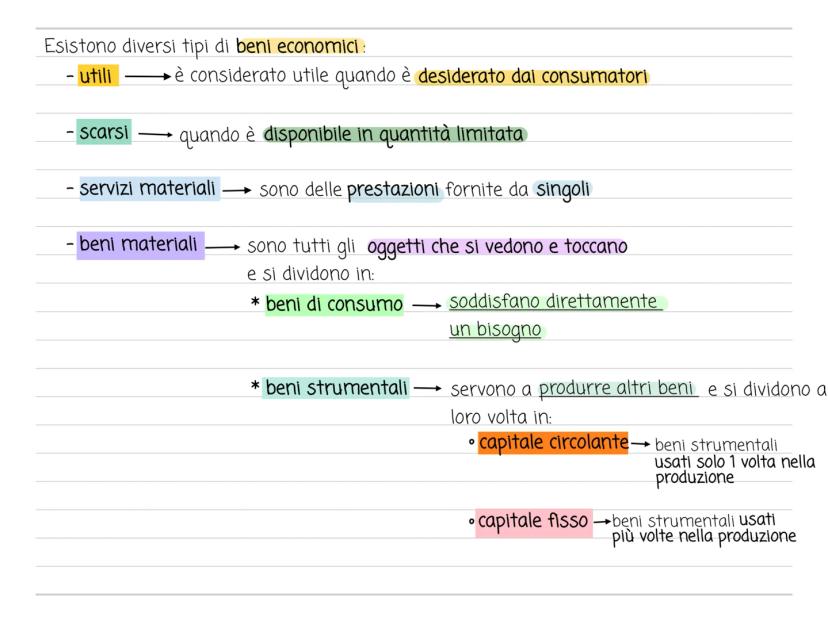 Esistono diversi tipi di beni economici:
- utili → è considerato utile quando è desiderato dai consumatori
- scarsi → quando è disponibile in quantità limitata
- servizi materiali → sono delle prestazioni fornite da singoli
- beni materiali → sono tutti gli oggetti che si vedono e toccano
e si dividono in:
* beni di consumo → soddisfano direttamente
un bisogno
* beni strumentali → servono a produrre altri beni e si dividono a
loro volta in:
° capitale circolante → beni strumentali
usati solo 1 volta nella
produzione
° capitale fisso → beni strumentali usati
più volte nella produzione